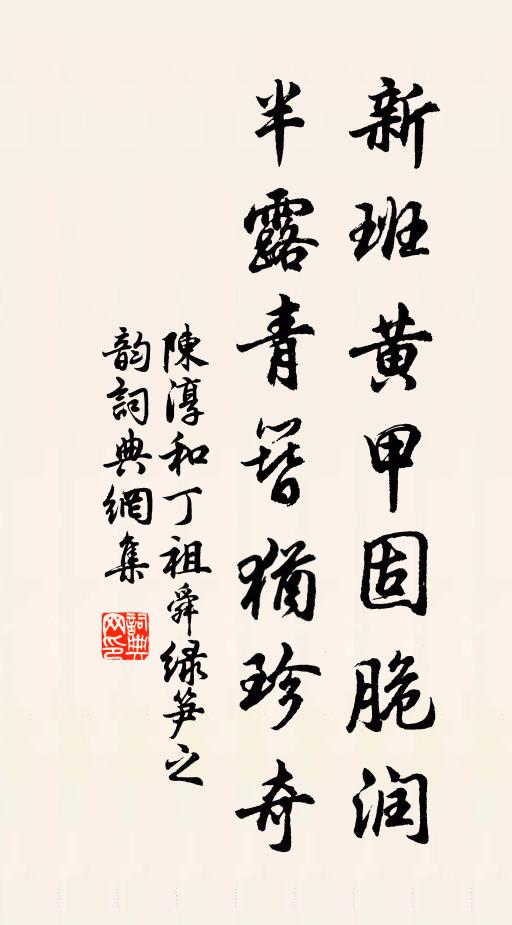 新班黄甲固脆润
半露青簪猶珍奇
陳淳和丁祖舜绿笋之
韵詞典網集
詞典
网印